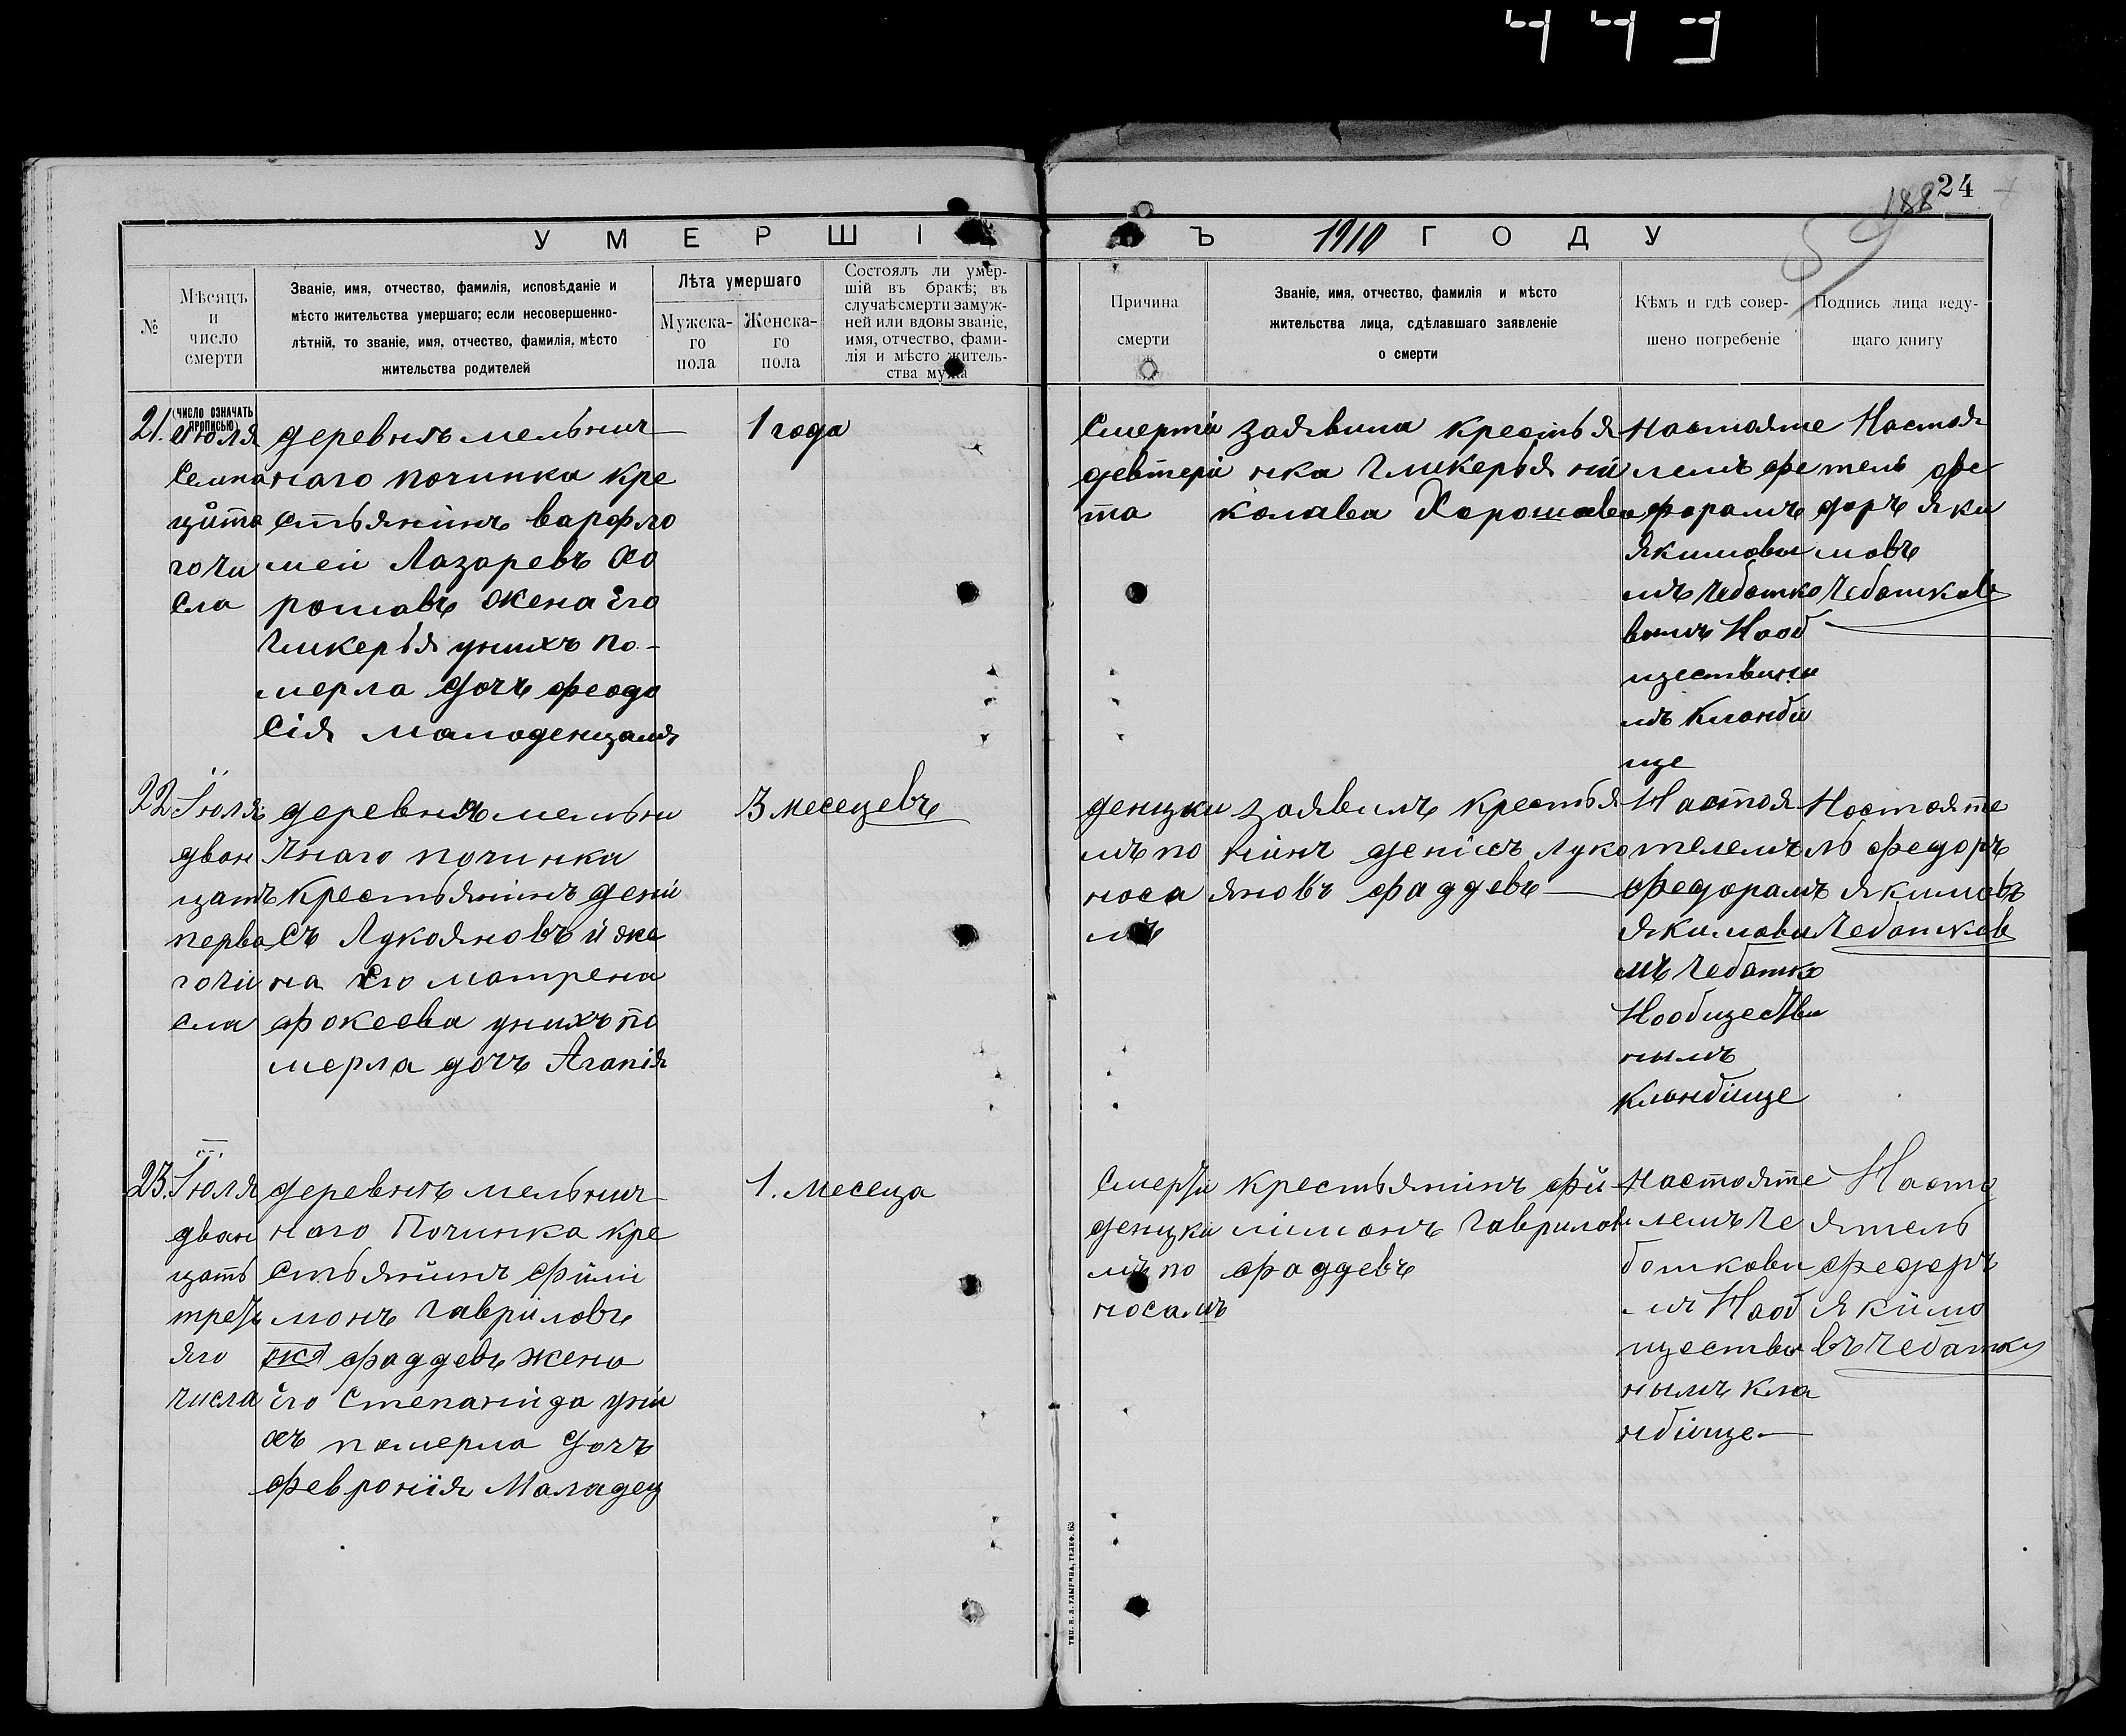 449
188
24
УМЕРШІ
Ъ 1910 ГОДУ
№
Мѣсяцъ
и
число
смерти
Званіе, имя, отчество, фамилія, исповѣданіе и
мѣсто жительства умершаго; если несовершенно-
лѣтній, то званіе, имя, отчество, фамилія, мѣсто
жительства родителей
Лѣта умершаго
Мужска-
го
пола
Женска-
го
пола
Состоялъ ли умер-
шій въ бракѣ; въ
случаѣ смерти замуж-
ней или вдовы званіе,
имя, отчество, фами-
лія и мѣсто житель-
ства мужа
Причина
смерти
Званіе, имя, отчество, фамилія и мѣсто
жительства лица, сдѣлавшаго заявленіе
о смерти
Кѣмъ и гдѣ совер-
шено погребеніе
Подпись лица веду-
щаго книгу
(число означать
прописью)
21.
Июля
Семна
цйта
го чи
сла
деревнѣ мельнич
наго починка кре
стьянинъ варфло
меи Лазаревъ Хо
рошавъ Жена Его
Гликерья унихъ по-
мерла дочь феодо
сія малоденцамъ
1 года
Смерти
девтери
та
Заявила крестья
нка Гликерья ни
колава Хорошава
Настояте
лемъ фе
дорамъ
Якимовы
мъ чеботко
вымъ Нооб
щественны
мъ кланби
ще
Настоя
тель фе
доръ яки
мовъ
Чебаткавъ
22
Іюля
дван
цать
перва
го чи
сла
деревнѣ мельни
чнаго починка
крестьянинъ дени
съ Лукояновъ й же
на Его матрена
фокеева унихъ по
мерла дочь Агапія
3 месецевъ
денцки
мъ по
носа
мъ
Заявилъ крестья
нинъ денисъ луко
яновъ фаддевъ
Настоя
телемъ
федорамъ
Якимовы
мъ чебатко
Нообществе
нымъ
кланбище
Настояте
ль федоръ
Якимовъ
Чебатковъ
23.
Іюля
дван
цать
треть
яго
числа
деревнѣ мельнич
наго Починка кре
стьянинъ Фили
монъ Гавриловъ
фаддевъ жена
Его Степанида уни
хъ померла дочь
феврония Маладец
1. месеца
Смерти
денцки
мъ по
носамъ
крестьянинъ фи
лимонъ Гавриловъ
фаддевъ
Настояте
лемъ Че
боткавы
мъ Нооб
ществе
нымъ кла
нбище
Насто
ятель
федоръ
якимо
въ чебатко